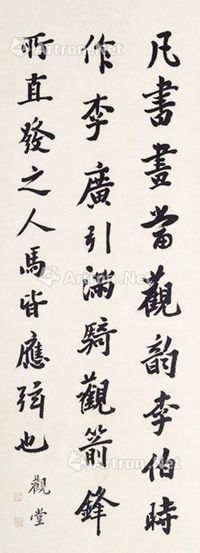 凡書畫當觀韵李伯時
作李廣引滿騎觀箭鋒
所直發之人馬皆應弦也
觀堂